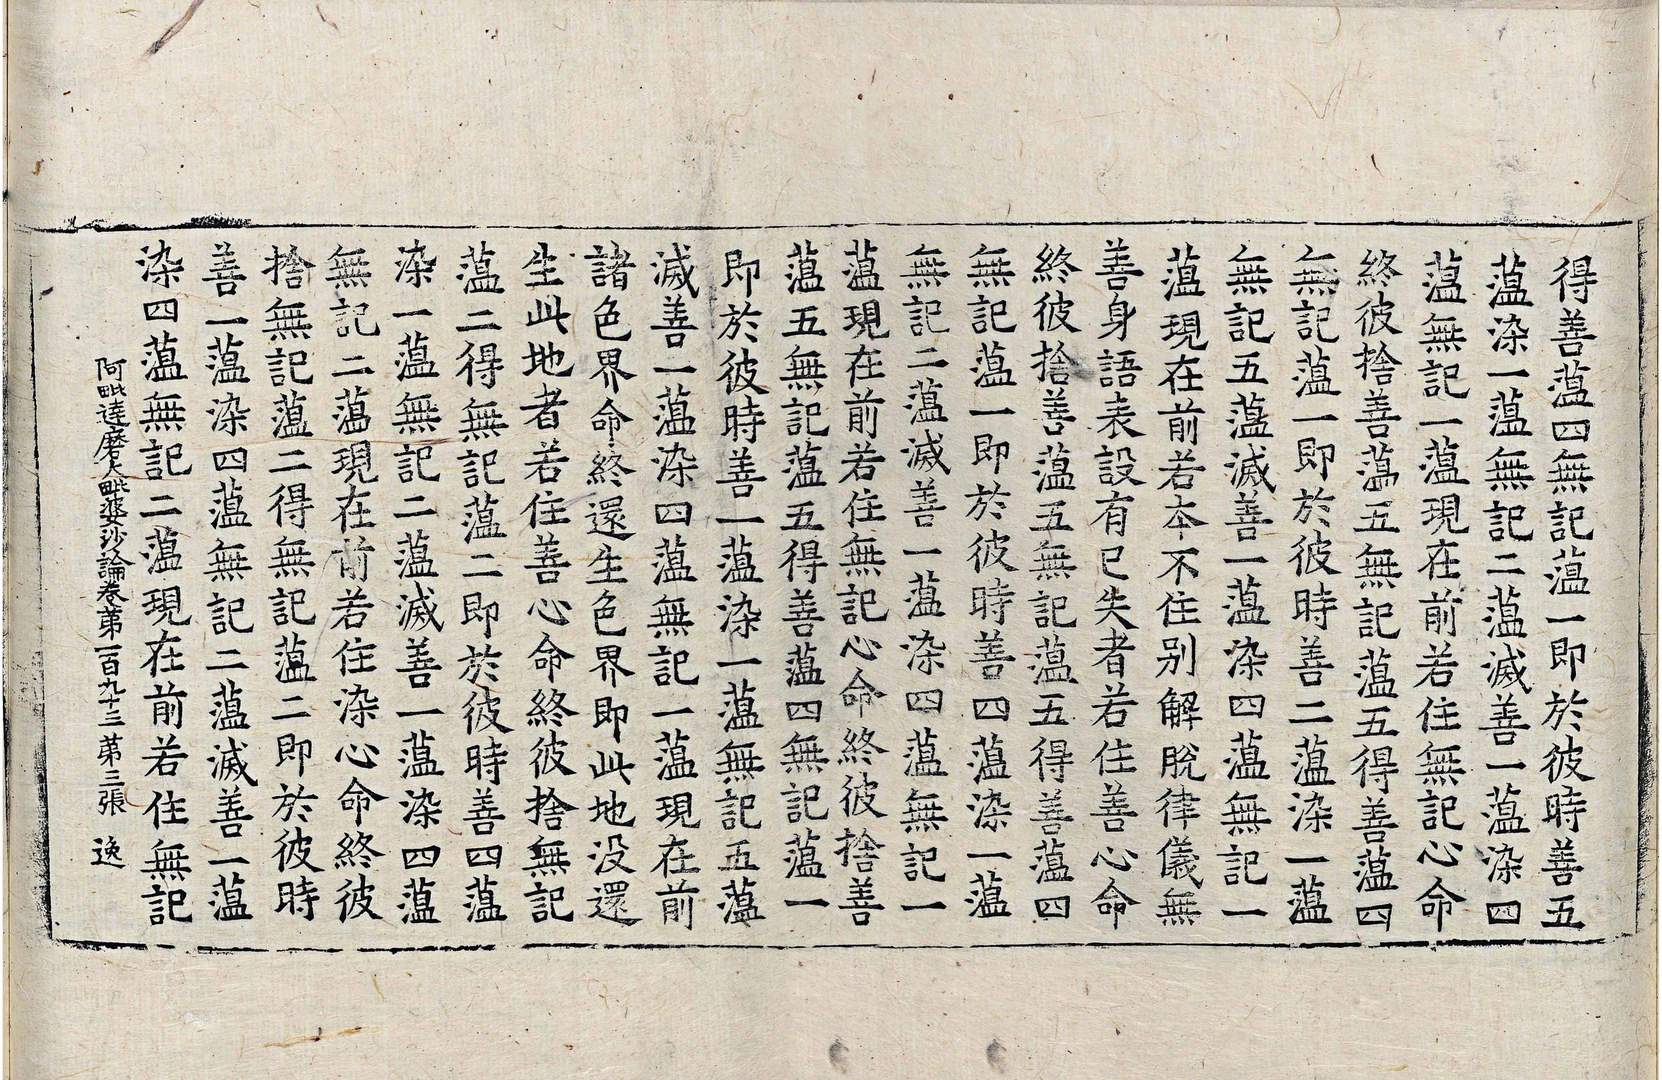 得善蕰四無記蕰一即於彼時善五
蕰染一蕰無記二蕰滅善一蕰染四
蕰無記一蕰現在前若住無記心命
終彼捨善蕰五無記蕰五得善蕰四
無記蕰一即於彼時善二蕰染一蕰
無記五蕰滅善一蕰染四蕰無記一
蕰現在前若本不住别解脫律儀無
善身語表設有已失者若住善心命
終彼捨善蕰五無記蕰五得善蕰四
無記蕰一即於彼時善四蕰染一蕰
無記二蕰滅善一蕰染四蕰無記一
蕰現在前若住無記心命終彼捨善
蕰五無記蕰五得善蕰四無記蕰一
即於彼時善一蕰染一蕰無記五蕰
滅善一蕰染四蕰無記一蕰現在前
諸色界命終還生色界即此地没還
生此地者若住善心命終彼捨無記
蕰二得無記蕰二即於彼時善四蕰
染一蕰無記二蕰滅善一蕰染四蕰
無記二蕰現在前若住染心命終彼
捨無記蕰二得無記蕰二即於彼時
善一蕰染四蕰無記二蕰滅善一蕰
染四蕰無記二蕰現在前若住無記
阿毗達磨大毗婆沙論卷第一百九十三 第三張 逸